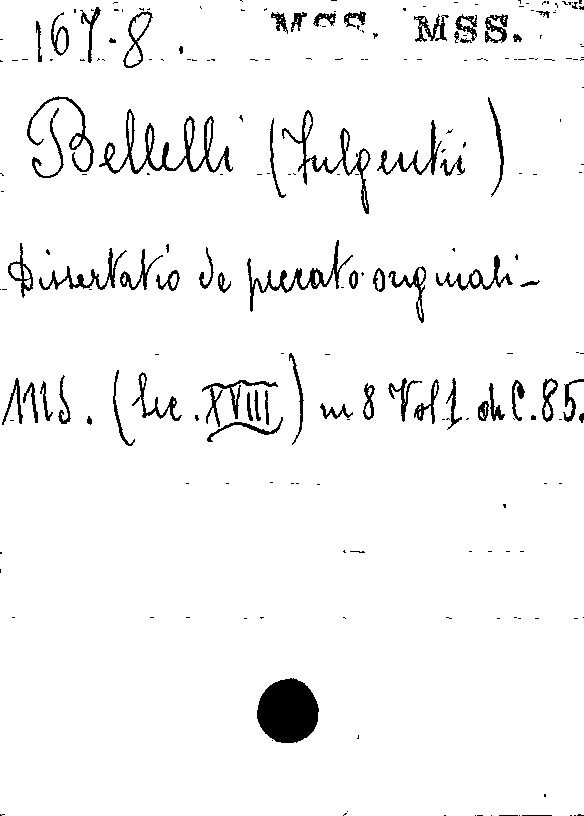 167-8. MSS. MSS.
Bellelli (Fulgentii)
Dissertatio de peccato originali-
MS. (Sec. XVIII) in 8 Vol 1 di C. 85.